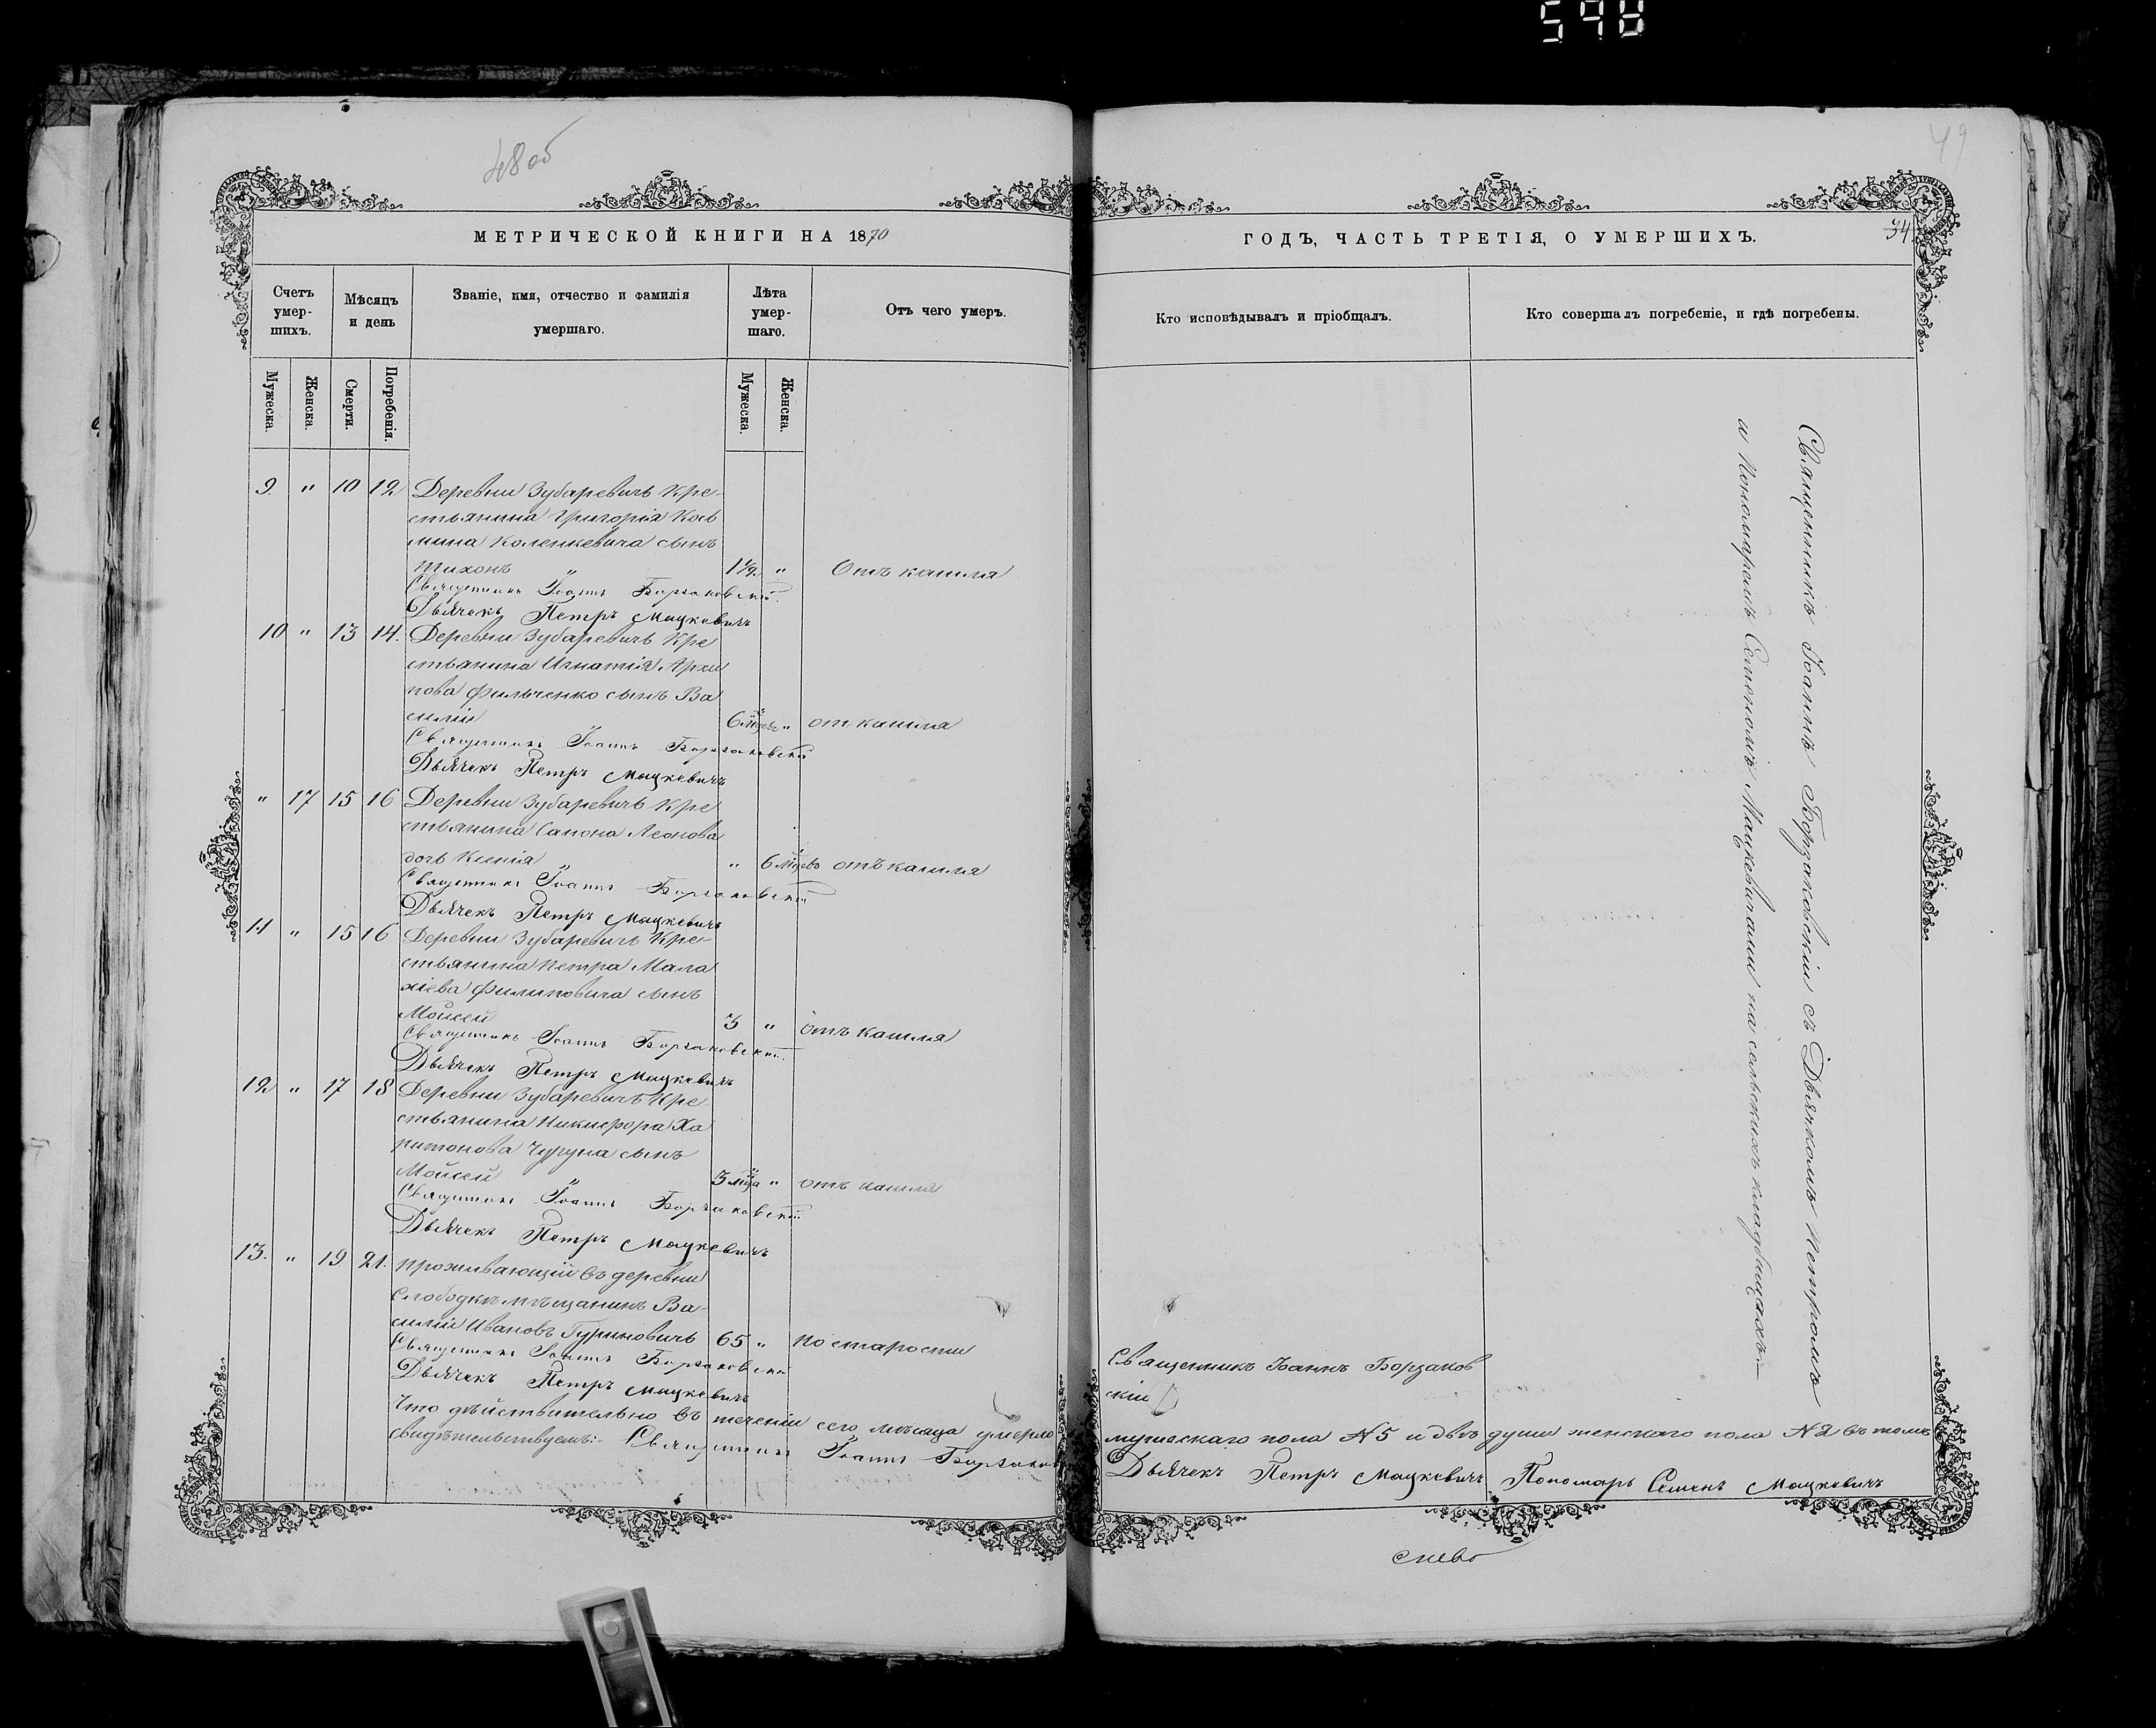 598
48 об
49
МЕТРИЧЕСКОЙ КНИГИ НА 1870
ГОДЪ, ЧАСТЬ ТРЕТІЯ, О УМЕРШИХЪ.
34
Счетъ умер-шихъ.
Мѣсяцъ и день
Званіе, имя, отчество и фамилія
умершаго.
Лѣта умер-шаго.
Отъ чего умеръ.
Кто исповѣдывалъ и пріобщалъ.
Кто совершалъ погребеніе, и гдѣ погребены.
Мужеска.
Женска.
Смерти.
Погребенія.
Мужеска.
Женска.
9. " 10 12 Деревни Зубаревичь Кре-
стьянина Григорія Кось
мина Коленкевича сынъ
Тихонъ 1½ " Отъ кашля
Священникъ Іоаннъ Борзаковскій.
Дьячекъ Петръ Мацкевичъ
10 " 13 14. Деревни Зубаревичь Кре
стьянина Игнатія Архи
пова Фильченко сынъ Ва
силій 6 мѣцевъ " от кашля
Священникъ Іоаннъ Борзаковскій
Дьячекъ Петръ Мацкевичъ
" 17 15 16 Деревни Зубаревичь Кре
стьянина Сапона Леонова
дочь Ксенія " 6 мѣцевъ отъ кашля
Священникъ Іоаннъ Борзаковскій
Дьячекъ Петръ Мацкевичъ
11 " 15 16 Деревни Зубаревичь Кре-
стьянина Петра Мала
хіева Филиповича сынъ
Мойсей 3 " отъ кашля
Священникъ Іоаннъ Борзаковскій.
Дьячекъ Петръ Мацкевичъ
12 " 17 18 Деревни Зубаревичь Кре
стьянина Никифора Ха
ритонова Чугуна сынъ
Мойсей 3 мѣца " отъ кашля
Священникъ Іоаннъ Борзаковскій
Дьячекъ Петръ Мацкевичъ
13. " 19 21. Проживающій въ деревни
Слободкѣ мѣщанинъ Ва-
силій Ивановъ Гуриновичъ 65 " По старости
Священникъ Іоаннъ Борзаковскій
Дьячекъ Петръ Мацкевичъ
Священникъ Іоаннъ Борзаков
скій
Священникъ Іоаннъ Борзаковскій съ Дьячкомъ Петромъ
и Пономаремъ Симеономъ Мацкевичами на сельскихъ кладбищахъ.
Что дѣйствительно въ теченіи сего мѣсаца умерло мужескаго пола №5 и двѣ души женскаго пола №2 въ томъ
свидѣтельствуемъ:- Священникъ Іоаннъ Борзаков Дьячекъ Петръ Мацкевичъ Пономарь Семенъ Мацкевичъ